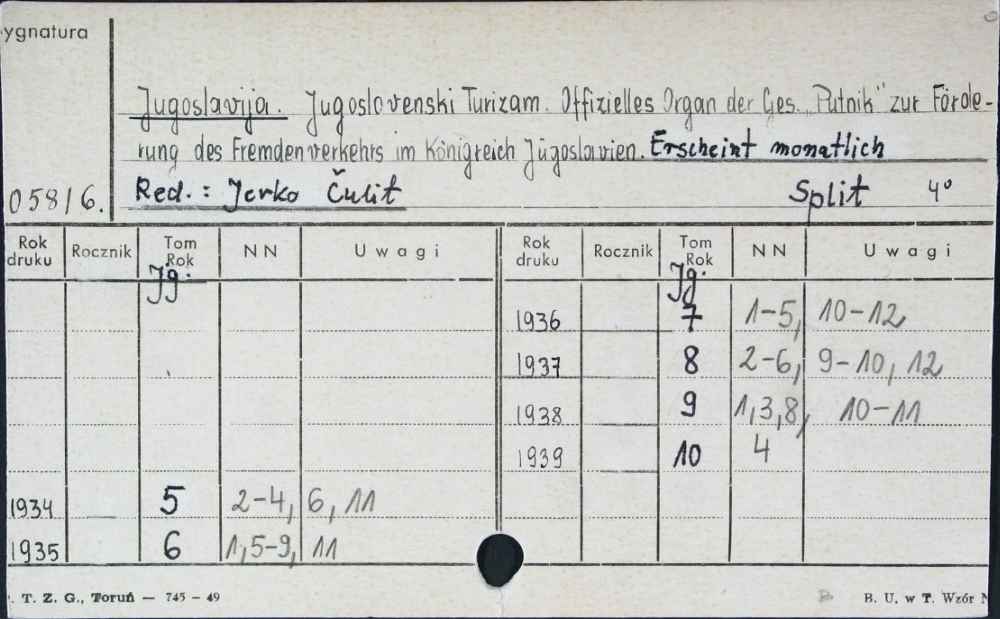 ygnatura
Jugoslavija. Jugoslovenski Turizam. Offizielles Organ der Ges. "Putnik" zur Förde-
rung des Fremdenverkehrs im Königreich Jugoslavien. Erscheint monatlich
058/6. Red.: Jerko Čulit Split 4°
Rok druku Rocznik Tom Rok NN Uwagi Rok druku Rocznik Tom Rok NN Uwagi
Jg. Jg.
1936 7 1-5, 10-12
1937 8 2-6, 9-10, 12
1938 9 1,3,8, 10-11
1939 10 4
1934 5 2-4, 6, 11
1935 6 1,5-9, 11
. T. Z. G., Toruń — 745 - 49 B. U. w T. Wzór N